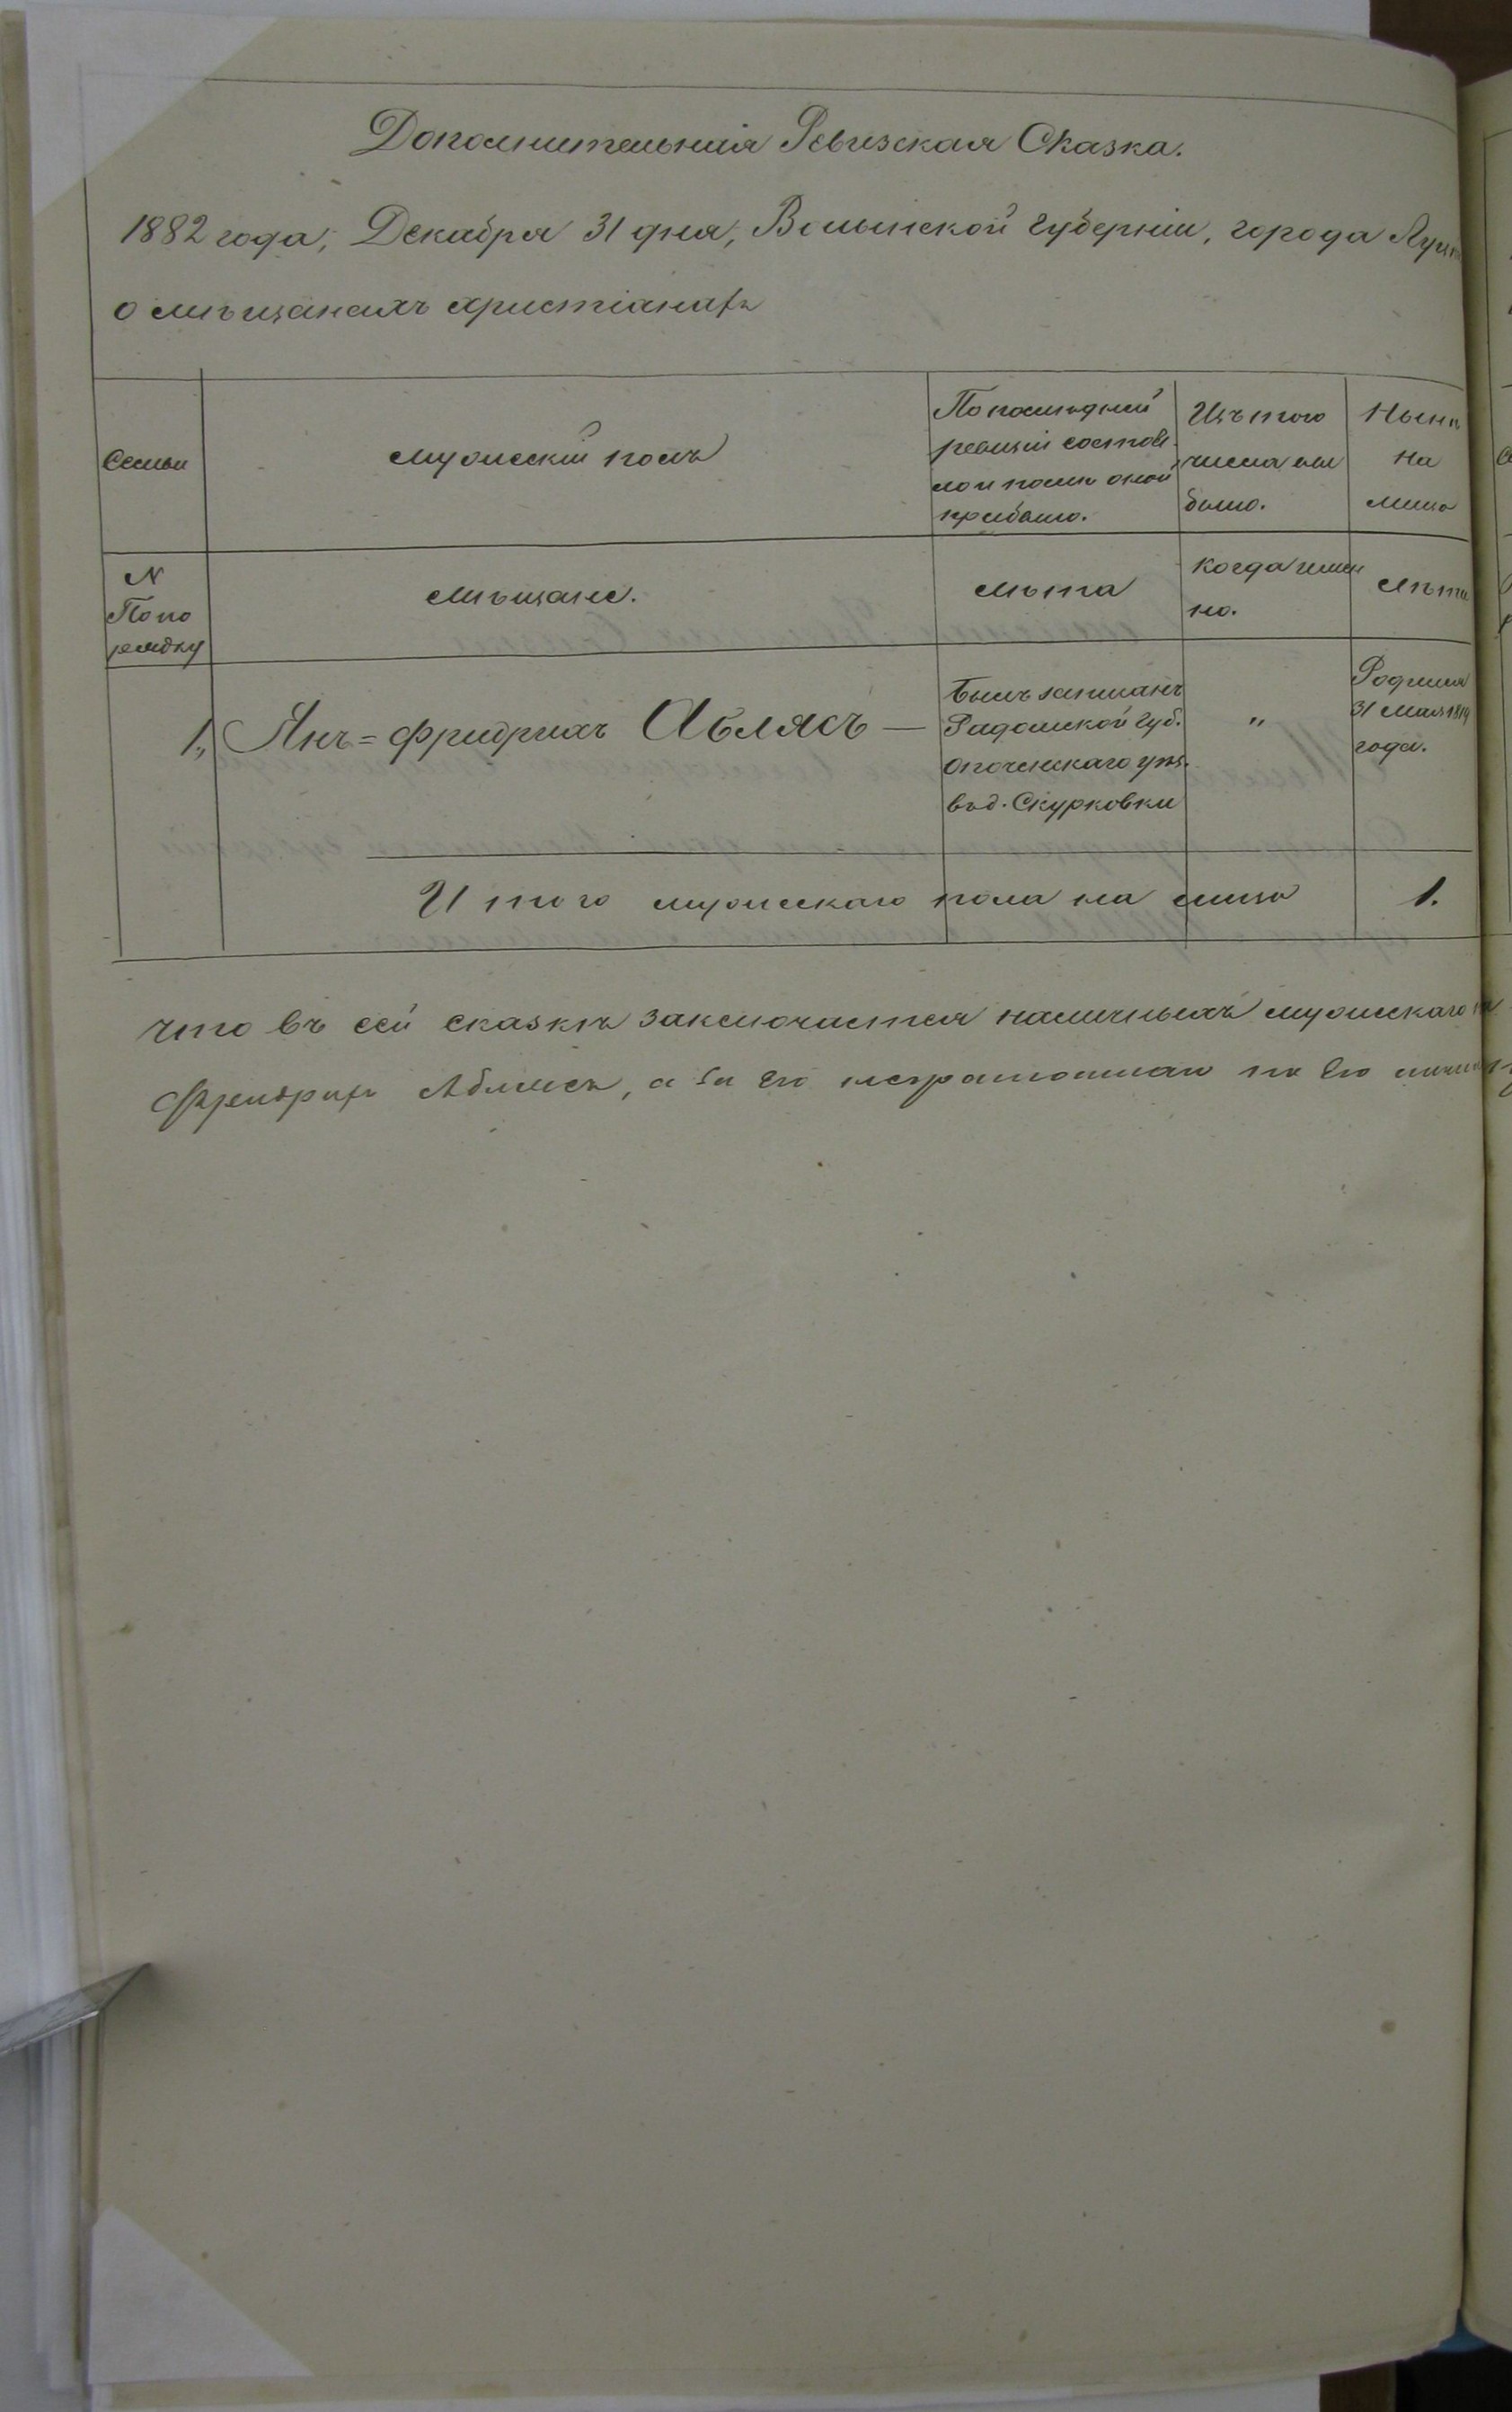 Дополнительная Ревизская Сказка.
1882 года, Декабря 31 дня, Волынской губерніи, города Луцка
о мѣщанахъ христіанахъ
Семьи
мужескій полъ
По послѣдней
ревизіи состоя-
ло и послѣ оной
прибыло.
Изъ того
числа вы
было.
Нынѣ
на
лицо
№
По по
рядку
мѣщане.
лѣта
когда имен
но.
лѣта
1., Янъ=Фридрихъ Аблясъ —
Былъ записанъ
Радомской губ.
Опоченскаго уѣз.
въ д. Скурковки
"
Родился
31 мая 1819
года.
Итого мужескаго пола на лицо 1.
что въ сей сказкѣ заключается наличныхъ мужескаго
Фридрихъ Аблясъ, а за его неграмотнаго по его